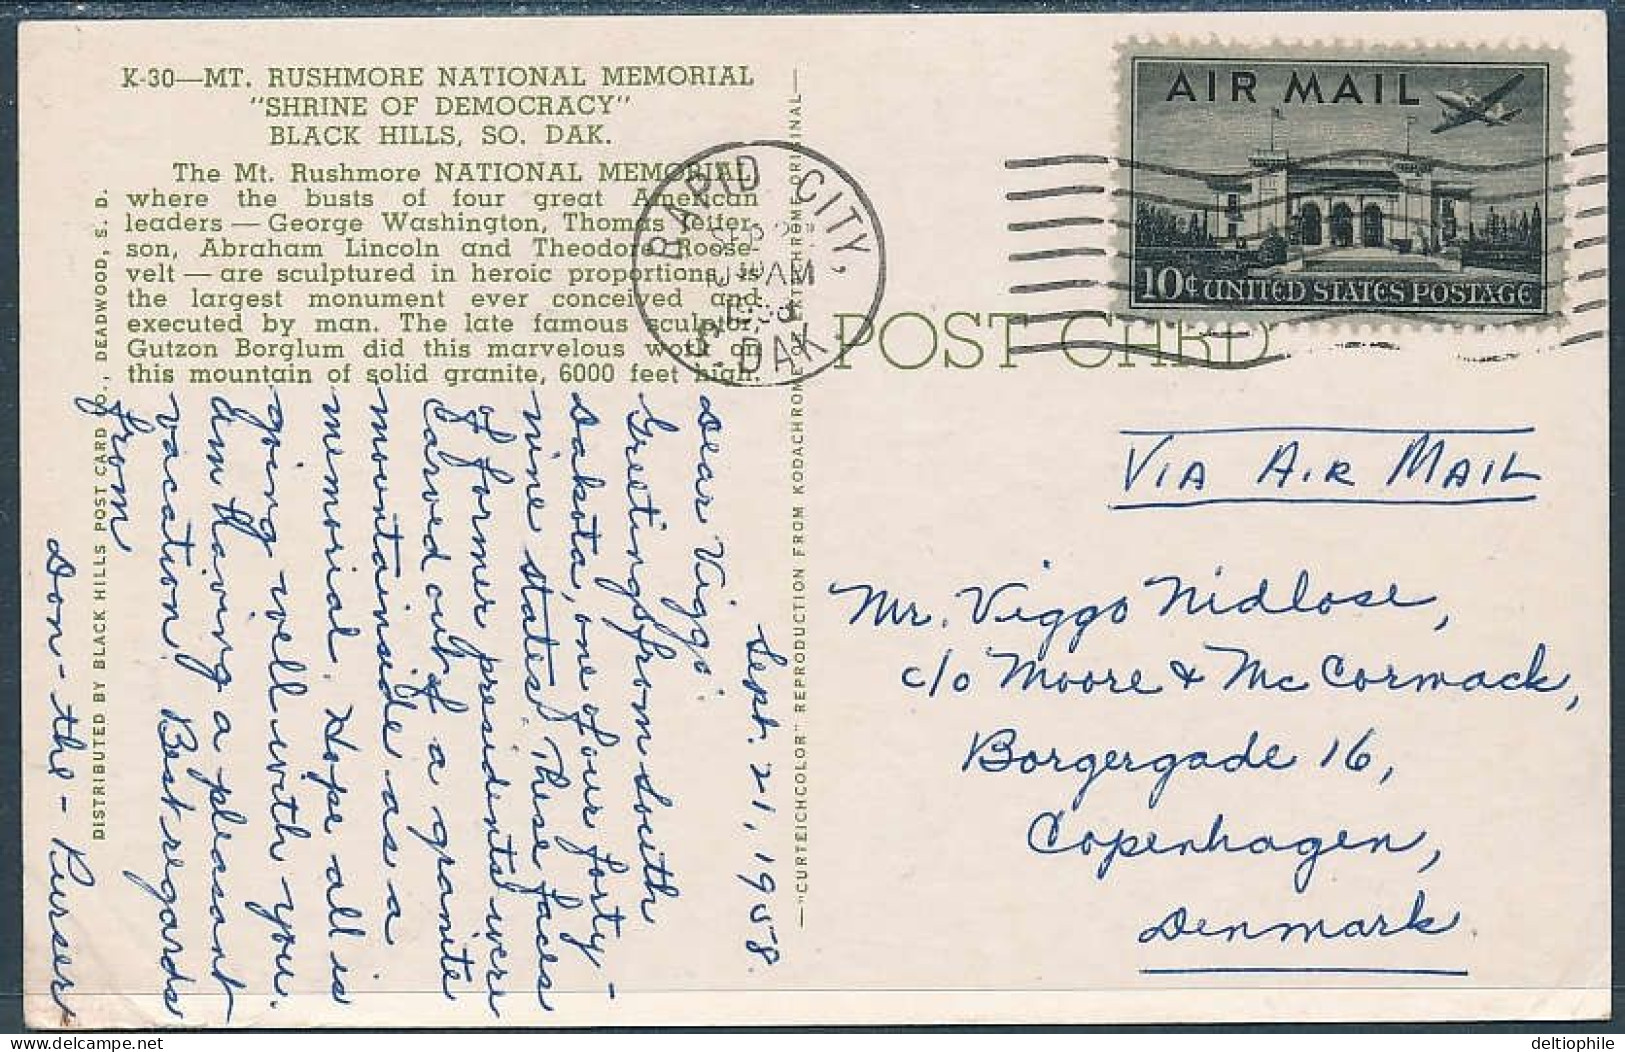 K-30—MT. RUSHMORE NATIONAL MEMORIAL
"SHRINE OF DEMOCRACY"
BLACK HILLS, SO. DAK.
The Mt. Rushmore NATIONAL MEMORIAL,
where the busts of four great American
leaders — George Washington, Thomas Jeffer-
son, Abraham Lincoln and Theodore Roose-
velt — are sculptured in heroic proportions, is
the largest monument ever conceived and
executed by man. The late famous sculptor,
Gutzon Borglum did this marvelous work on
this mountain of solid granite, 6000 feet high.
DISTRIBUTED BY BLACK HILLS POST CARD CO., DEADWOOD, S. D.
Sept. 21, 1958.
Dear Viggo:
Greetings from South
Dakota, one of our forty-
nine states. These faces
of former presidents were
carved out of a granite
mountainside as a
memorial. Hope all is
going well with you.
Am having a pleasant
vacation. Best regards
from
Don - the - Purser
—"CURTEICHCOLOR" REPRODUCTION FROM KODACHROME OR EKTACHROME ORIGINAL—
RAPID CITY,
AM
1958
S. DAK.
AIR MAIL
10¢ UNITED STATES POSTAGE
POST CARD
VIA AIR MAIL
Mr. Viggo Nidlose,
c/o Moore & McCormack,
Borgergade 16,
Copenhagen,
Denmark
deltiophile